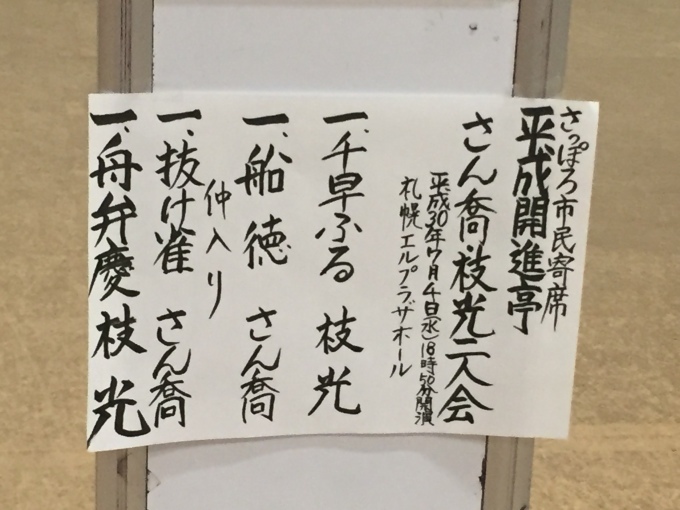 さっぽろ市民寄席
平成開進亭
さん喬・枝光二人会
平成30年7月4日(水)18時50分開演
札幌エルプラザホール
一、千早ふる 枝光
一、船徳 さん喬
仲入り
一、抜け雀 さん喬
一、舟弁慶 枝光